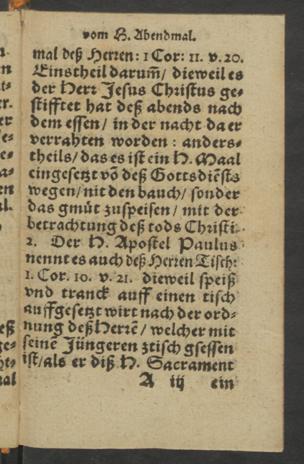 vom H. Abendmal.
mal deß Herren: 1 Cor: 11. v. 20.
Einstheil darum̃/ dieweil es
der Herr Jesus Christus ge-
stifftet hat deß abends nach
dem essen/ in der nacht da er
verrahten worden: anders-
theils/ das es ist ein H. Maal
eingesetzt võ deß Gottsdiẽsts
wegen/ nit den bauch/ sonder
das gmüt zuspeisen/ mit der
betrachtung deß tods Christi.
2. Der H. Apostel Paulus
nennt es auch deß Herren Tisch:
1. Cor. 10. v. 21. dieweil speiß
vnd tranck auff einen tisch
auffgesetzt wirt nach der ord-
nung deß Herrẽ/ welcher mit
seinẽ Jüngeren ztisch gsessen
ist/ als er diß H. Sacrament
A iij ein